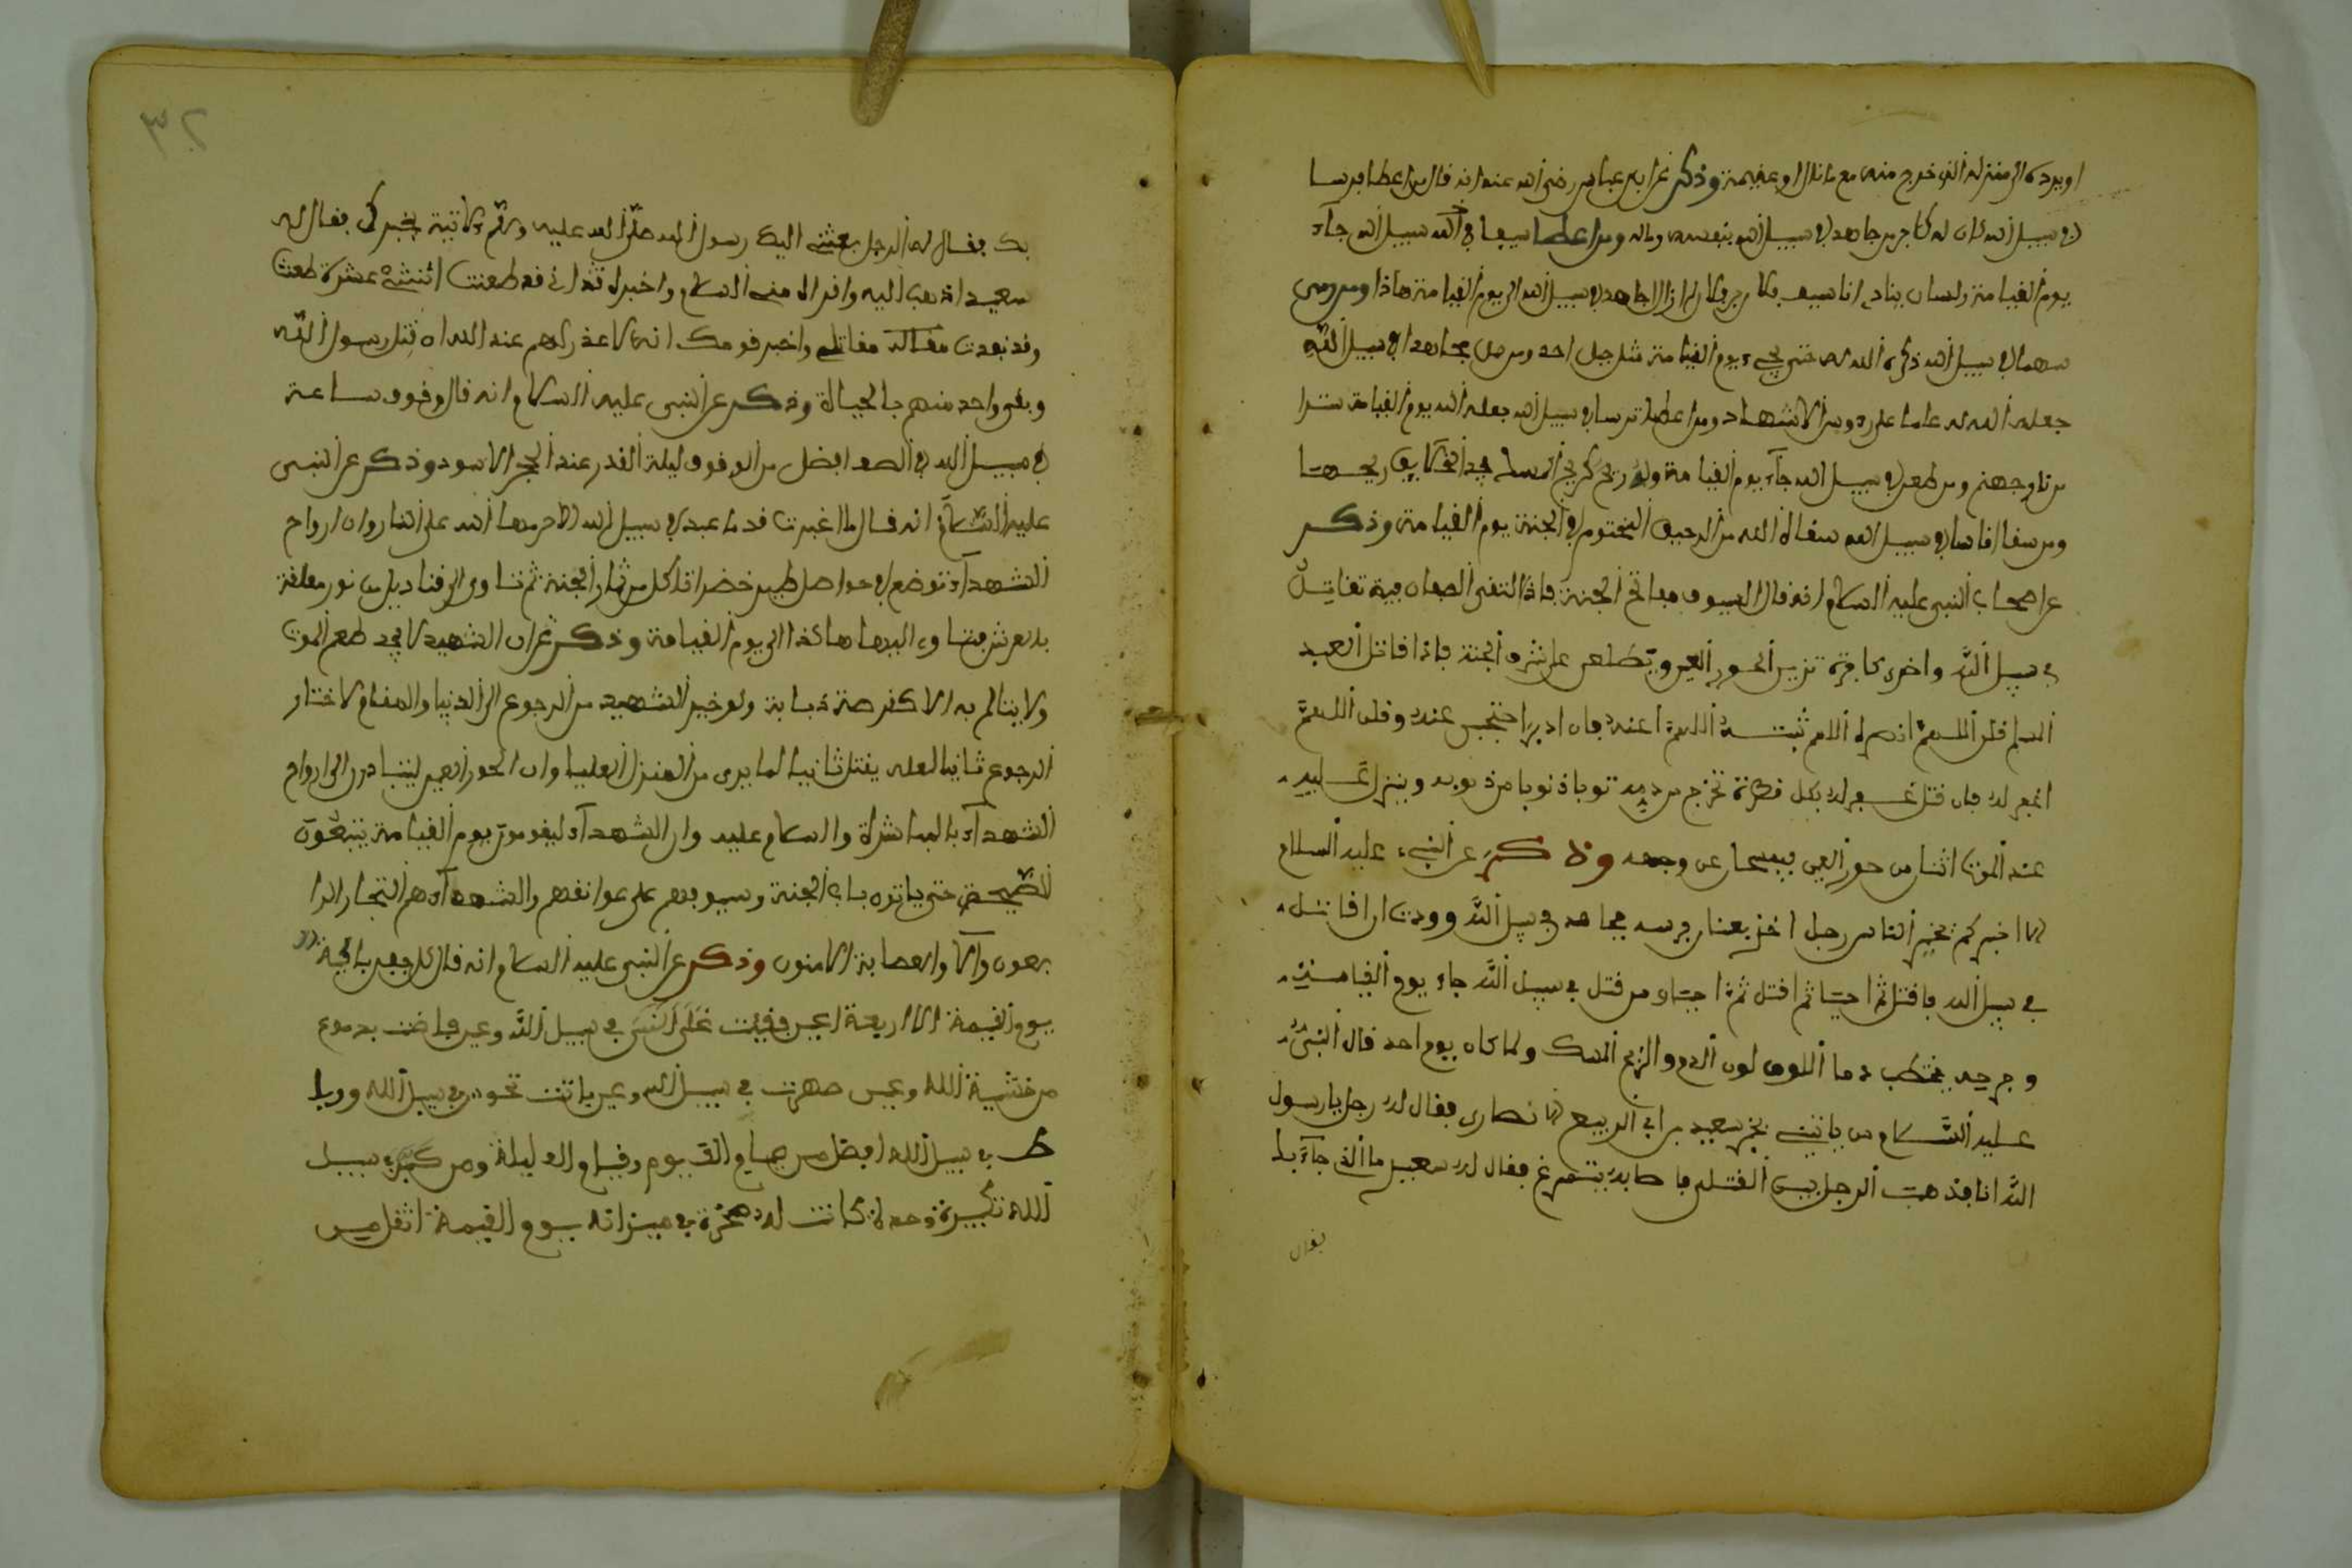 او يرده الى منزله الذي خرج منه مع ما نال او غنيمة وذكر عن ابن عباس رضي الله عنه انه قال من اعطا فرسا
في سبيل الله كان له كاجر من جاهد في سبيل الله بنفسه وماله ومن اعطا سيفا في سبيل الله جاء
يوم القيامة ولسان ينادي انا سيف فلان بن فلان لم ازل اجاهد في سبيل الله الى يوم القيامة هاذا ومن رمى
سهما في سبيل الله ذكره الله له حتى يجيء يوم القيامة مثل جبل احد ومن حمل مجاهدا في سبيل الله
جعله الله له علما على رءوس الاشهاد ومن اعطا ترسا في سبيل الله جعله الله يوم القيامة سترا
من نار جهنم ومن طعن في سبيل الله جاء يوم القيامة وله ريح كريح المسك يجد الخلايق ريحها
ومن سقا انسانا في سبيل الله سقاه الله من الرحيق المختوم في الجنة يوم القيامة وذكر
عن اصحاب النبي عليه السلام انه قال السيوف مفاتح الجنة فاذا التقى الصفان فية تقاتل
في سبيل الله واخرى كافرة تزين الحور العين ويطلعن على شرف الجنة فاذا قاتل العبد
المسلم قلن اللهم انصره اللهم ثبته اللهم اعنه فان ادبر احتجبن عنه وقلن اللهم
اغفر له فان قتل غفر له بكل قطرة تخرج من دمه ذنوبا من ذنوبه وينزل عليه
عند الموت اثنان من حور العين يمسحان عن وجهه وذكر عن النبي عليه السلام
الا اخبركم بخير الناس رجل اخذ بعنان فرسه مجاهد في سبيل الله وودت ان اقاتل
في سبيل الله فاقتل ثم احيا ثم اقتل ثم احيا ومن قتل في سبيل الله جاء يوم القيامة
وجرحه يشخب دما اللون لون الدم والريح المسك ولما كان يوم احد قال النبي
عليه السلام من ياتيني بخبر سعيد بن ابي الربيع الانصاري فقال له رجل يا رسول
الله انا فذهب الرجل بين القتلى فاصابه يتمرغ فقال له سعيد ما الذي جاء بك
فقال
٣٢
بك فقال له الرجل بعثني اليك رسول الله صلى الله عليه وسلم لاتيه بخبرك فقال له
سعيد اذهب اليه واقراه مني السلام واخبره اني قد طعنت اثنتى عشرة طعنة
وقد نفدت مقاتلي واخبر قومك انه لا عذر لهم عند الله ان قتل رسول الله
وبقي واحد منهم بالحياة وذكر عن النبي عليه السلام انه قال وقوف ساعة
في سبيل الله في الصف افضل من الوقوف ليلة القدر عند الحجر الاسود وذكر عن النبي
عليه السلام انه قال ما اغبرت قدما عبد في سبيل الله الا حرمها الله على النار وان ارواح
الشهداء توضع في حواصل طير خضر تاكل من ثمار الجنة ثم تاوي الى قناديل من نور معلقة
بالعرش فتاوي اليها هاكذا الى يوم القيامة وذكر ان الشهيد لا يجد طعم الموت
ولا يتالم به الا كقرصة ذبابة ولو خير الشهيد من الرجوع الى الدنيا والمقام لاختار
الرجوع ثانيا لعله يقتل ثانيا لما يرى من المنزل العليا وان الحور العين ليتبادرن الى ارواح
الشهداء بالمباشرة والسلام عليه وان الشهداء ليقومون يوم القيامة يتبعون
حتى ياتون باب الجنة وسيوفهم على عواتقهم والشهداء هم التجار الرا
بحون والعصابة الامنون وذكر عن النبي عليه السلام انه قال كل عين باكية
يوم القيمة الا اربعة اعين فقيت في سبيل الله وعين فاضت بدموع
من خشية الله وعين سهرت في سبيل الله وعين باتت تحرس في سبيل الله وربا
ط في سبيل الله افضل من صيام الف يوم وقيام الف ليلة ومن كبر في سبيل
الله تكبيرة واحدة كانت له صخرة في ميزانه يوم القيمة اثقل من